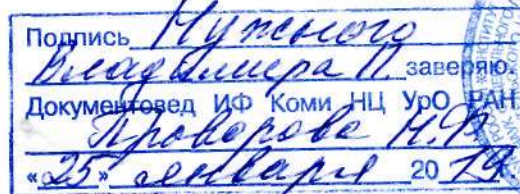 Подпись Нужного
Владимира П. заверяю
Документовед ИФ Коми НЦ УрО РАН
Проворова Н.Ф.
«25» января 2019.